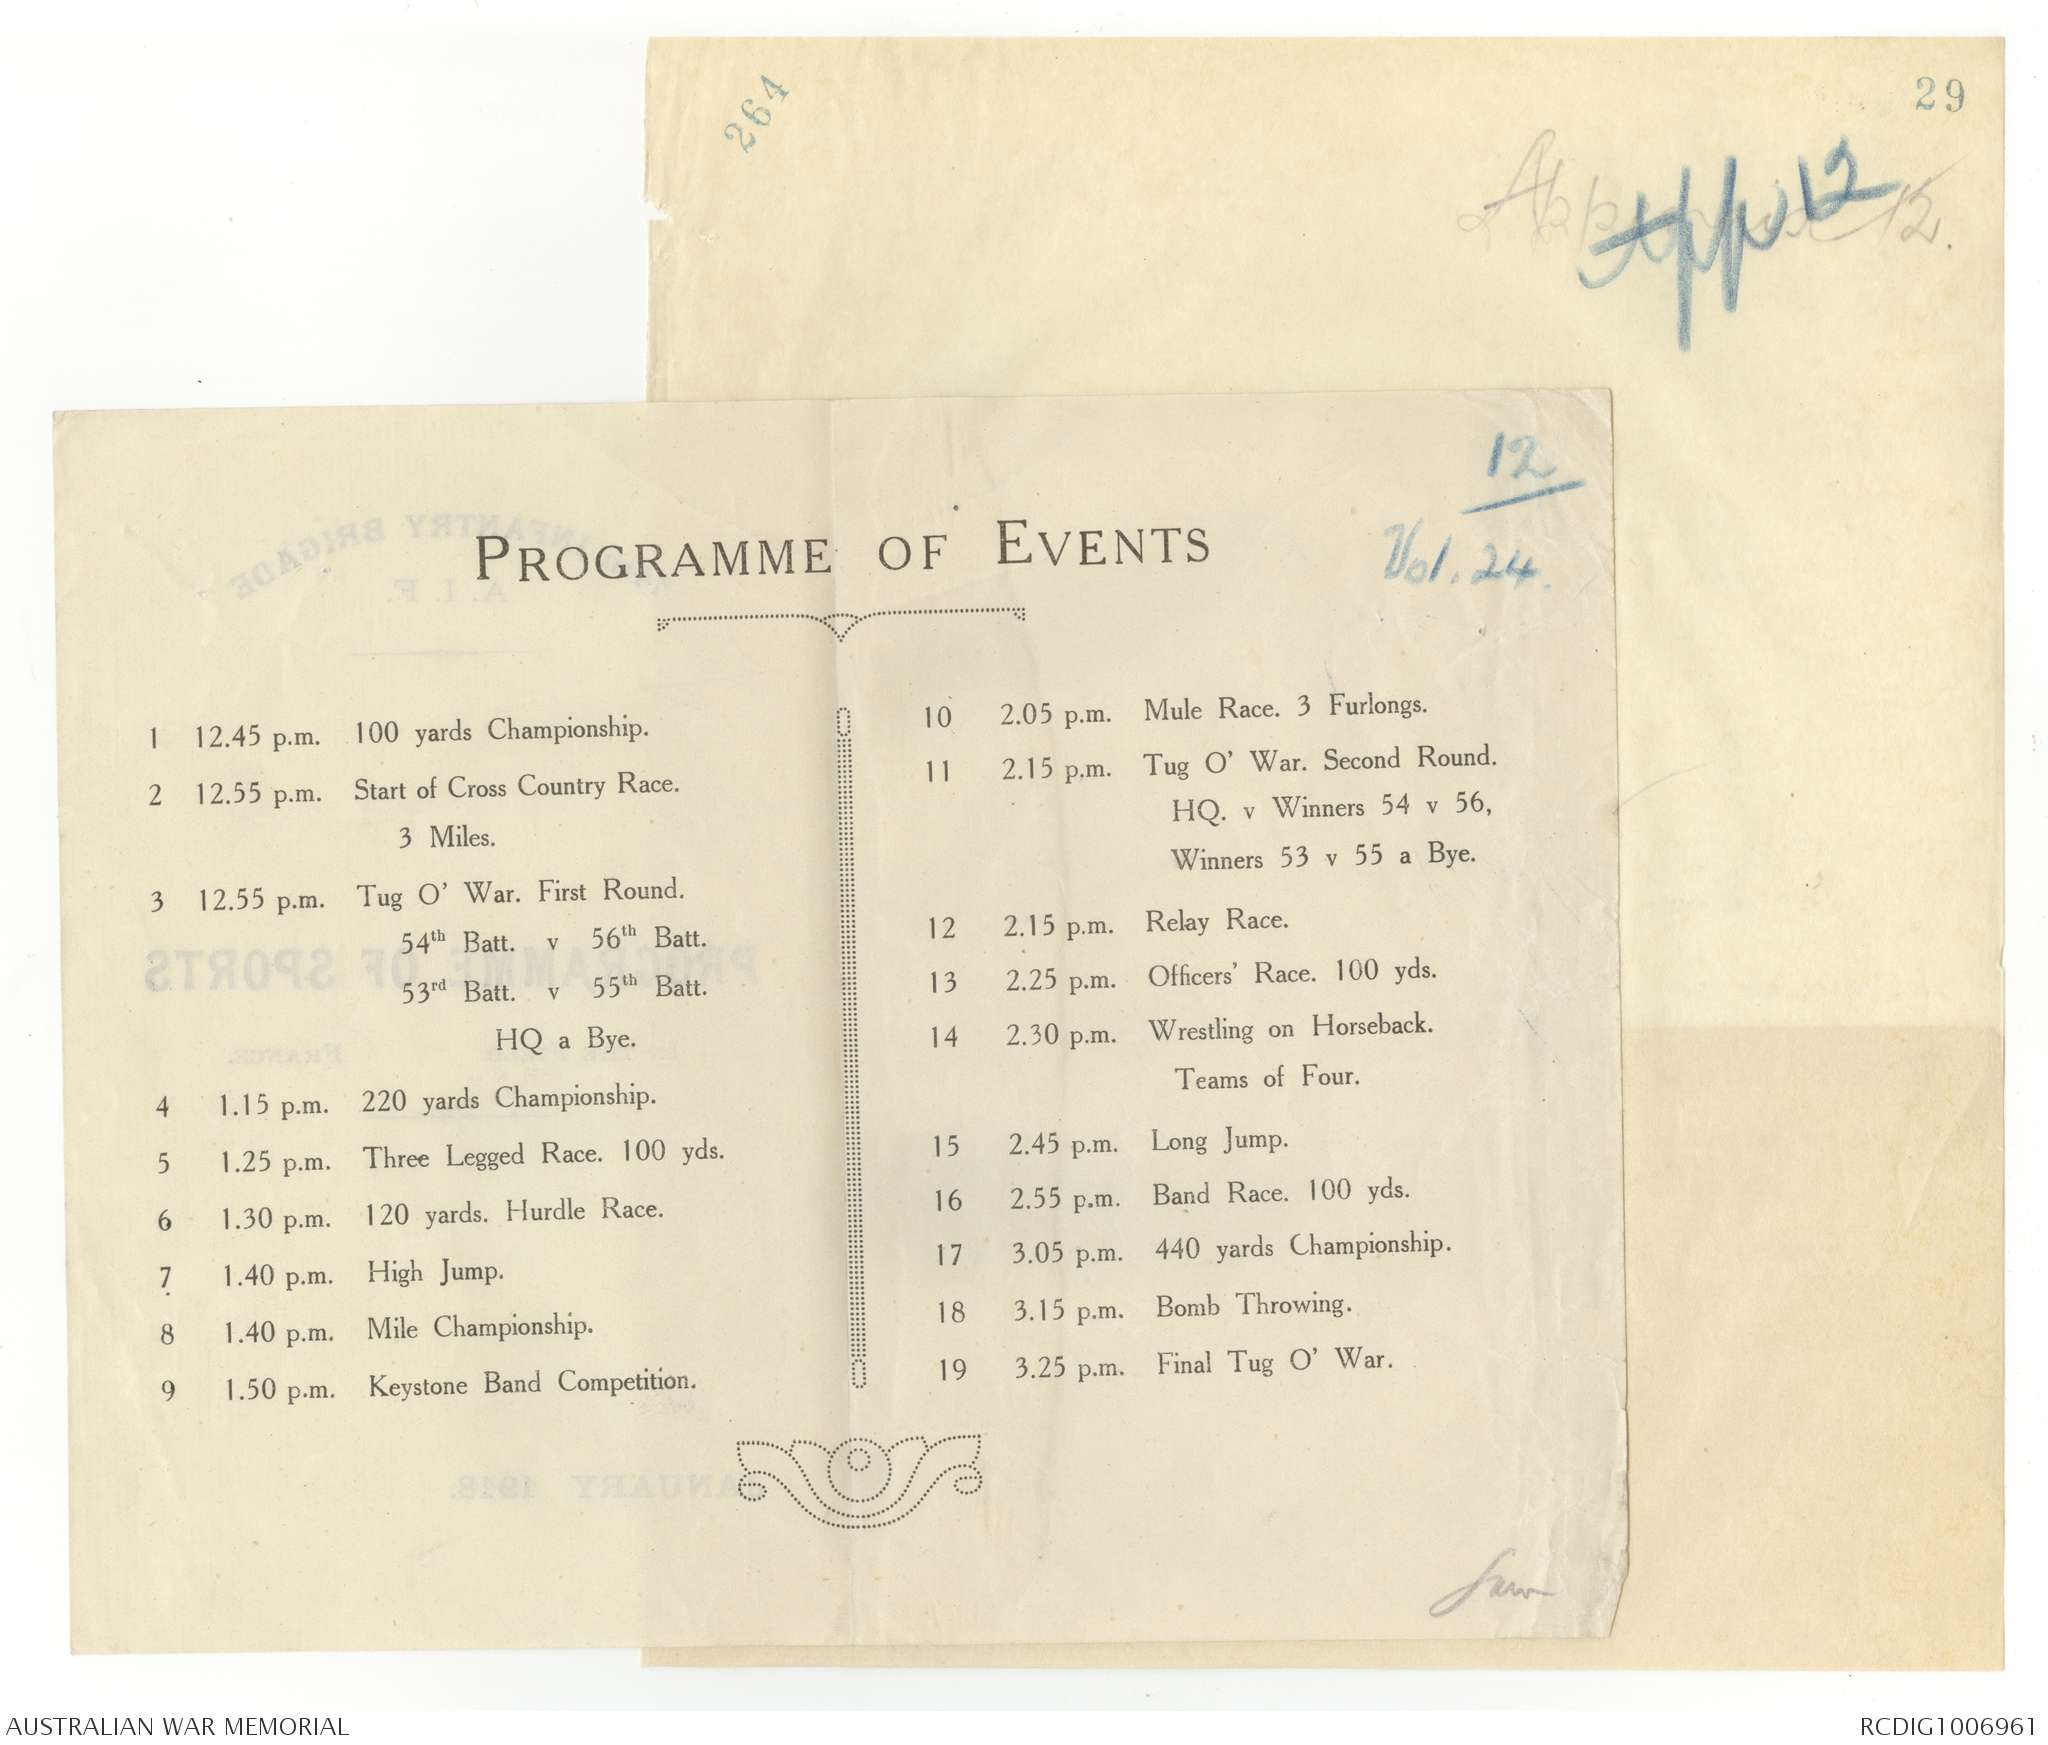 264
29
Appendix 12.
App 12
12
Vol. 24.
PROGRAMME OF EVENTS
1 12.45 p.m. 100 yards Championship.
2 12.55 p.m. Start of Cross Country Race.
3 Miles.
3 12.55 p.m. Tug O' War. First Round.
54th Batt. v 56th Batt.
53rd Batt. v 55th Batt.
HQ a Bye.
4 1.15 p.m. 220 yards Championship.
5 1.25 p.m. Three Legged Race. 100 yds.
6 1.30 p.m. 120 yards. Hurdle Race.
7 1.40 p.m. High Jump.
8 1.40 p.m. Mile Championship.
9 1.50 p.m. Keystone Band Competition.
10 2.05 p.m. Mule Race. 3 Furlongs.
11 2.15 p.m. Tug O' War. Second Round.
HQ. v Winners 54 v 56,
Winners 53 v 55 a Bye.
12 2.15 p.m. Relay Race.
13 2.25 p.m. Officers' Race. 100 yds.
14 2.30 p.m. Wrestling on Horseback.
Teams of Four.
15 2.45 p.m. Long Jump.
16 2.55 p.m. Band Race. 100 yds.
17 3.05 p.m. 440 yards Championship.
18 3.15 p.m. Bomb Throwing.
19 3.25 p.m. Final Tug O' War.
AUSTRALIAN WAR MEMORIAL
RCDIG1006961